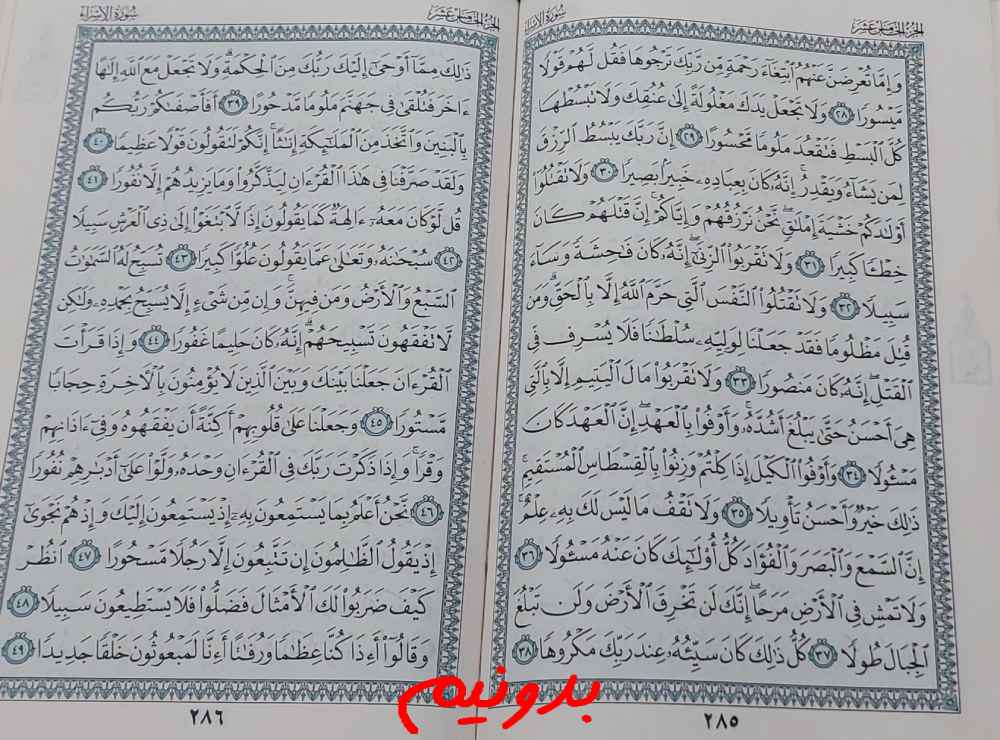 الجزء الخامس عشر
سورة الإسراء
وَإِمَّا تُعْرِضَنَّ عَنْهُمُ ٱبْتِغَآءَ رَحْمَةٍ مِّن رَّبِّكَ تَرْجُوهَا فَقُل لَّهُمْ قَوْلًا
مَّيْسُورًا ٢٨ وَلَا تَجْعَلْ يَدَكَ مَغْلُولَةً إِلَىٰ عُنُقِكَ وَلَا تَبْسُطْهَا
كُلَّ ٱلْبَسْطِ فَتَقْعُدَ مَلُومًا مَّحْسُورًا ٢٩ إِنَّ رَبَّكَ يَبْسُطُ ٱلرِّزْقَ
لِمَن يَشَآءُ وَيَقْدِرُ ۚ إِنَّهُۥ كَانَ بِعِبَادِهِۦ خَبِيرًۢا بَصِيرًا ٣٠ وَلَا تَقْتُلُوٓا۟
أَوْلَٰدَكُمْ خَشْيَةَ إِمْلَٰقٍ ۖ نَّحْنُ نَرْزُقُهُمْ وَإِيَّاكُمْ ۚ إِنَّ قَتْلَهُمْ كَانَ
خِطْـًٔا كَبِيرًا ٣١ وَلَا تَقْرَبُوا۟ ٱلزِّنَىٰٓ ۖ إِنَّهُۥ كَانَ فَٰحِشَةً وَسَآءَ
سَبِيلًا ٣٢ وَلَا تَقْتُلُوا۟ ٱلنَّفْسَ ٱلَّتِى حَرَّمَ ٱللَّهُ إِلَّا بِٱلْحَقِّ ۗ وَمَن
قُتِلَ مَظْلُومًا فَقَدْ جَعَلْنَا لِوَلِيِّهِۦ سُلْطَٰنًا فَلَا يُسْرِف فِّى
ٱلْقَتْلِ ۖ إِنَّهُۥ كَانَ مَنصُورًا ٣٣ وَلَا تَقْرَبُوا۟ مَالَ ٱلْيَتِيمِ إِلَّا بِٱلَّتِى
هِىَ أَحْسَنُ حَتَّىٰ يَبْلُغَ أَشُدَّهُۥ ۚ وَأَوْفُوا۟ بِٱلْعَهْدِ ۖ إِنَّ ٱلْعَهْدَ كَانَ
مَسْـُٔولًا ٣٤ وَأَوْفُوا۟ ٱلْكَيْلَ إِذَا كِلْتُمْ وَزِنُوا۟ بِٱلْقِسْطَاسِ ٱلْمُسْتَقِيمِ ۚ
ذَٰلِكَ خَيْرٌ وَأَحْسَنُ تَأْوِيلًا ٣٥ وَلَا تَقْفُ مَا لَيْسَ لَكَ بِهِۦ عِلْمٌ ۚ
إِنَّ ٱلسَّمْعَ وَٱلْبَصَرَ وَٱلْفُؤَادَ كُلُّ أُو۟لَٰٓئِكَ كَانَ عَنْهُ مَسْـُٔولًا ٣٦
وَلَا تَمْشِ فِى ٱلْأَرْضِ مَرَحًا ۖ إِنَّكَ لَن تَخْرِقَ ٱلْأَرْضَ وَلَن تَبْلُغَ
ٱلْجِبَالَ طُولًا ٣٧ كُلُّ ذَٰلِكَ كَانَ سَيِّئُهُۥ عِندَ رَبِّكَ مَكْرُوهًا ٣٨
٢٨٥
الجزء الخامس عشر
سورة الإسراء
ذَٰلِكَ مِمَّآ أَوْحَىٰٓ إِلَيْكَ رَبُّكَ مِنَ ٱلْحِكْمَةِ ۗ وَلَا تَجْعَلْ مَعَ ٱللَّهِ إِلَٰهًا
ءَاخَرَ فَتُلْقَىٰ فِى جَهَنَّمَ مَلُومًا مَّدْحُورًا ٣٩ أَفَأَصْفَىٰكُمْ رَبُّكُم
بِٱلْبَنِينَ وَٱتَّخَذَ مِنَ ٱلْمَلَٰٓئِكَةِ إِنَٰثًا ۚ إِنَّكُمْ لَتَقُولُونَ قَوْلًا عَظِيمًا ٤٠
وَلَقَدْ صَرَّفْنَا فِى هَٰذَا ٱلْقُرْءَانِ لِيَذَّكَّرُوا۟ وَمَا يَزِيدُهُمْ إِلَّا نُفُورًا ٤١
قُل لَّوْ كَانَ مَعَهُۥٓ ءَالِهَةٌ كَمَا يَقُولُونَ إِذًا لَّٱبْتَغَوْا۟ إِلَىٰ ذِى ٱلْعَرْشِ سَبِيلًا
٤٢ سُبْحَٰنَهُۥ وَتَعَٰلَىٰ عَمَّا يَقُولُونَ عُلُوًّا كَبِيرًا ٤٣ تُسَبِّحُ لَهُ ٱلسَّمَٰوَٰتُ
ٱلسَّبْعُ وَٱلْأَرْضُ وَمَن فِيهِنَّ ۚ وَإِن مِّن شَىْءٍ إِلَّا يُسَبِّحُ بِحَمْدِهِۦ وَلَٰكِن
لَّا تَفْقَهُونَ تَسْبِيحَهُمْ ۗ إِنَّهُۥ كَانَ حَلِيمًا غَفُورًا ٤٤ وَإِذَا قَرَأْتَ
ٱلْقُرْءَانَ جَعَلْنَا بَيْنَكَ وَبَيْنَ ٱلَّذِينَ لَا يُؤْمِنُونَ بِٱلْءَاخِرَةِ حِجَابًا
مَّسْتُورًا ٤٥ وَجَعَلْنَا عَلَىٰ قُلُوبِهِمْ أَكِنَّةً أَن يَفْقَهُوهُ وَفِىٓ ءَاذَانِهِمْ
وَقْرًا ۚ وَإِذَا ذَكَرْتَ رَبَّكَ فِى ٱلْقُرْءَانِ وَحْدَهُۥ وَلَّوْا۟ عَلَىٰٓ أَدْبَٰرِهِمْ نُفُورًا
٤٦ نَّحْنُ أَعْلَمُ بِمَا يَسْتَمِعُونَ بِهِۦٓ إِذْ يَسْتَمِعُونَ إِلَيْكَ وَإِذْ هُمْ نَجْوَىٰٓ
إِذْ يَقُولُ ٱلظَّٰلِمُونَ إِن تَتَّبِعُونَ إِلَّا رَجُلًا مَّسْحُورًا ٤٧ ٱنظُرْ
كَيْفَ ضَرَبُوا۟ لَكَ ٱلْأَمْثَالَ فَضَلُّوا۟ فَلَا يَسْتَطِيعُونَ سَبِيلًا ٤٨
وَقَالُوٓا۟ أَءِذَا كُنَّا عِظَٰمًا وَرُفَٰتًا أَءِنَّا لَمَبْعُوثُونَ خَلْقًا جَدِيدًا ٤٩
٢٨٦
بدونیم